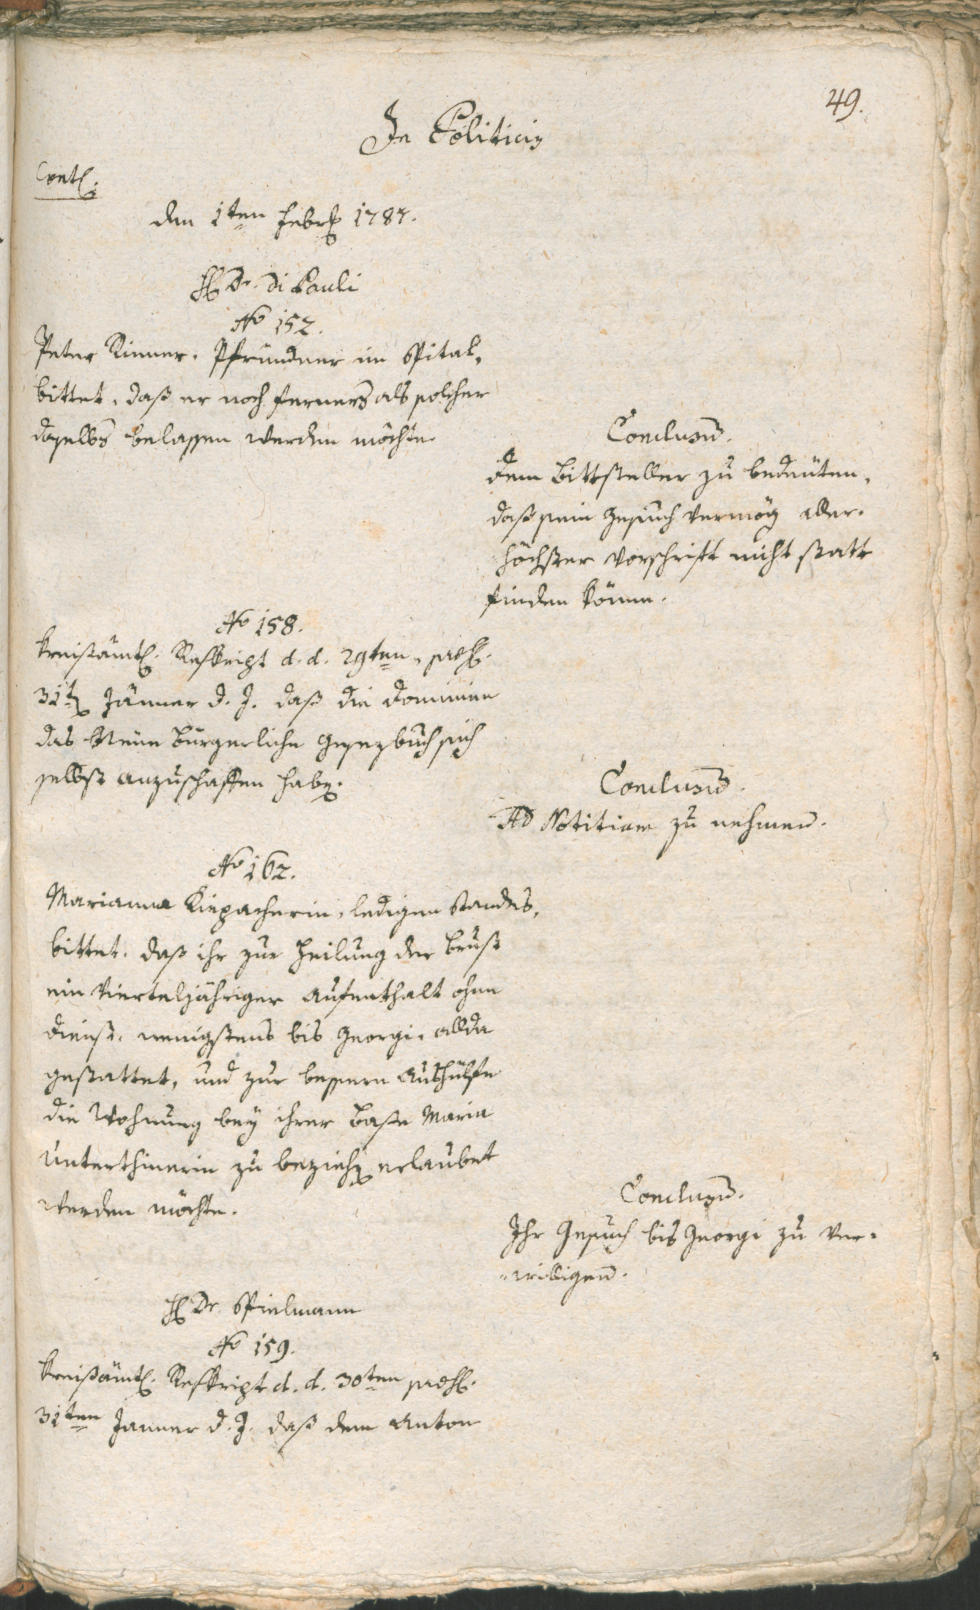 49.
In Politicis
Cont.
den 1ten Febr. 1787.
H. Dr. di Pauli
No 152.
Peter Rinner, Pfründner im Spital,
bittet, daß er noch ferners als solcher
daselbs belassen werden möchte.
Conclusum.
Dem Bittsteller zu bedeuten,
daß sein Gesuch vermög aller-
höchster Vorschrift nicht statt
finden könne.
No 158.
Kreisämtl. Reskript d. d. 29ten, praes.
31t Jänner d. J. daß die Dominien
das Neue Bürgerliche Gesezbuch sich
selbst anzuschaffen haben.
Conclusum.
Ad Notitiam zu nehmen.
No 162.
Marianna ledigen Standes,
bittet, daß ihr zur Heilung der Brust
ein vierteljähriger Aufenthalt ohne
Dienst, wenigstens bis Georgi, allda
gestattet, und zur bessern Aushülfe
die Wohnung bey ihrer Base Maria
Unterthinerin zu beziehen erlaubet
werden möchte.
Conclusum.
Ihr Gesuch bis Georgi zu ver-
willigen.
H. Dr. Spielmann
No 159.
Kreisämtl. Reskript d. d. 30ten praes.
31ten Janner d. J. daß dem Anton